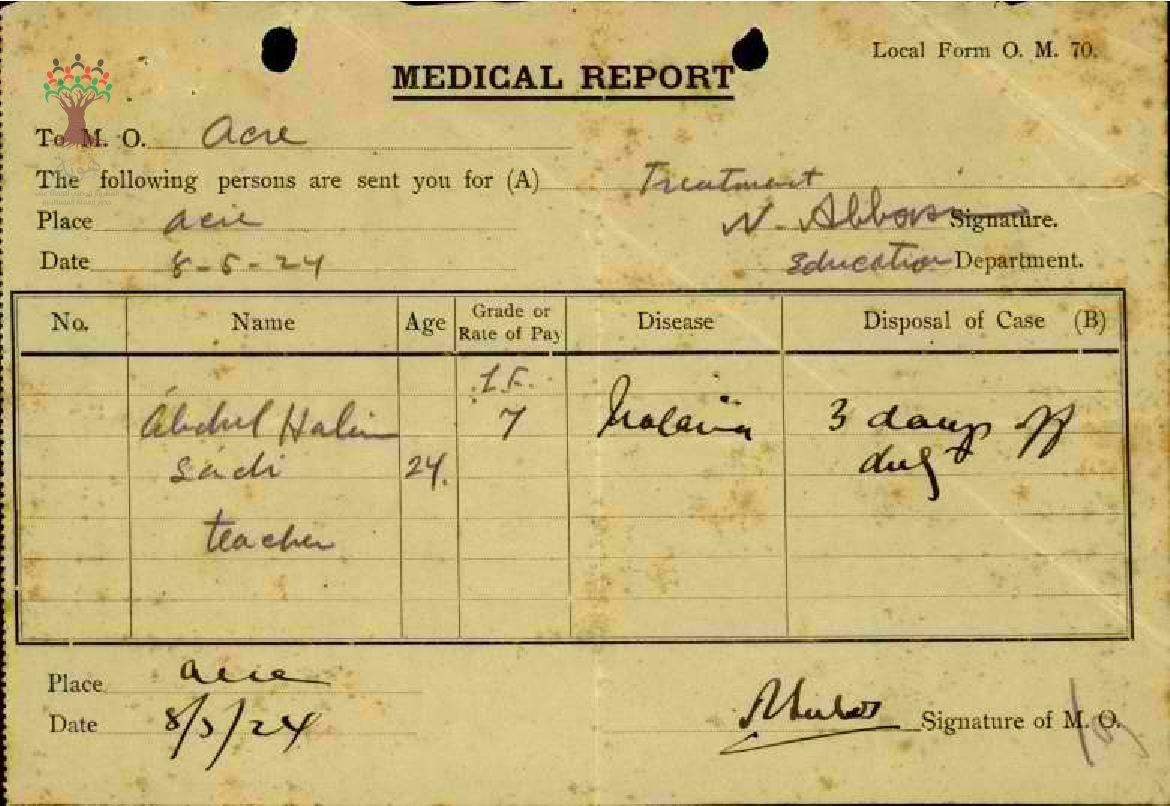 Local Form O. M. 70.
MEDICAL REPORT
To M. O. Acre
The following persons are sent you for (A) Treatment
Place Acre N. Abbas Signature.
Date 8-5-24 Education Department.
No. Name Age Grade or Rate of Pay Disease Disposal of Case (B)
Abdul Halim 7 Malaria 3 days off
Sadi 24. duty
teacher
Place Acre
Date 8/5/24 Signature of M. O.